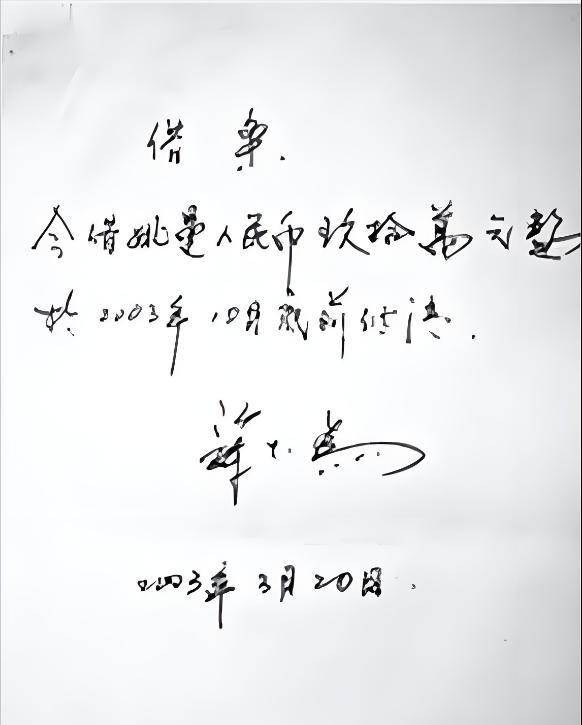 借 案.
今借姚星人民币玖拾萬元整
於2003年10月底前付清.
2003年3月20日.